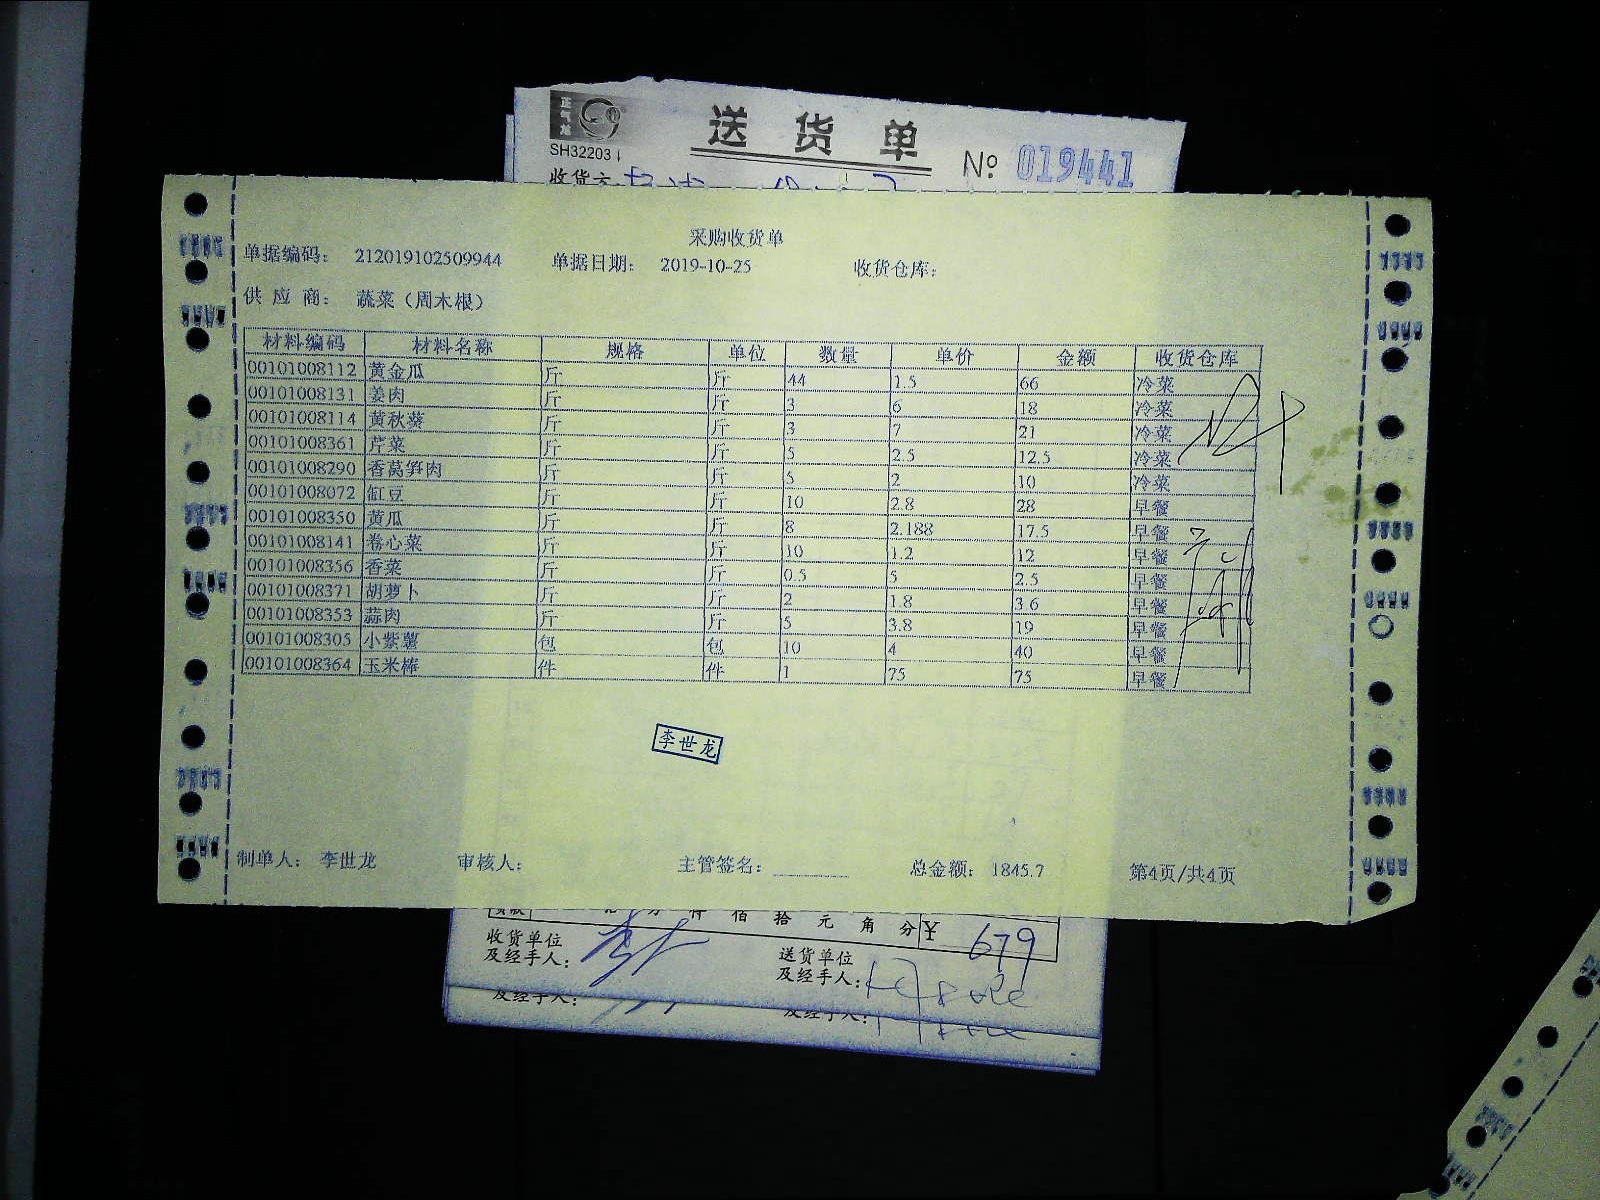 正气龙
SH32203
送货单
№ 019441
采购收货单
单据编码： 212019102509944 单据日期： 2019-10-25 收货仓库：
供应商： 蔬菜（周木根）
材料编码 材料名称 规格 单位 数量 单价 金额 收货仓库
00101008112 黄金瓜 斤 斤 44 1.5 66 冷菜
00101008131 姜肉 斤 斤 3 6 18 冷菜
00101008114 黄秋葵 斤 斤 3 7 21 冷菜
00101008361 芹菜 斤 斤 5 2.5 12.5 冷菜
00101008290 香莴笋肉 斤 斤 5 2 10 冷菜
00101008072 缸豆 斤 斤 10 2.8 28 早餐
00101008350 黄瓜 斤 斤 8 2.188 17.5 早餐
00101008141 卷心菜 斤 斤 10 1.2 12 早餐
00101008356 香菜 斤 斤 0.5 5 2.5 早餐
00101008371 胡萝卜 斤 斤 2 1.8 3.6 早餐
00101008353 蒜肉 斤 斤 5 3.8 19 早餐
00101008305 小紫薯 包 包 10 4 40 早餐
00101008364 玉米棒 件 件 1 75 75 早餐
李世龙
制单人： 李世龙 审核人： 主管签名： 总金额： 1845.7 第4页/共4页
仟 佰 拾 元 角 分 ¥ 679
收货单位 送货单位
及经手人： 及经手人：
及经手人： 及经手人：